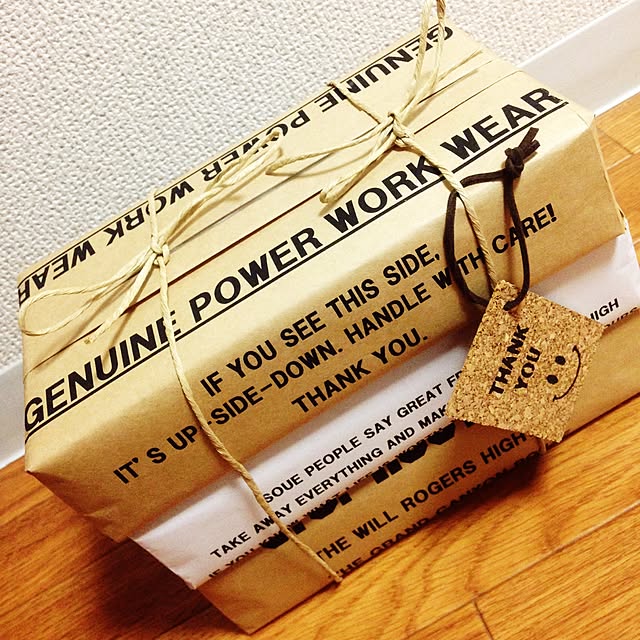 GENUINE POWER WORK WEAR
GENUINE POWER WORK WEAR
IF YOU SEE THIS SIDE,
IT'S UP-SIDE-DOWN. HANDLE WITH CARE!
THANK YOU.
THANK
YOU
SOUE PEOPLE SAY GREAT
HIGH
TAKE AWAY EVERYTHING AND
IF YOU
THE WILL ROGERS HIGH
THE GRAND